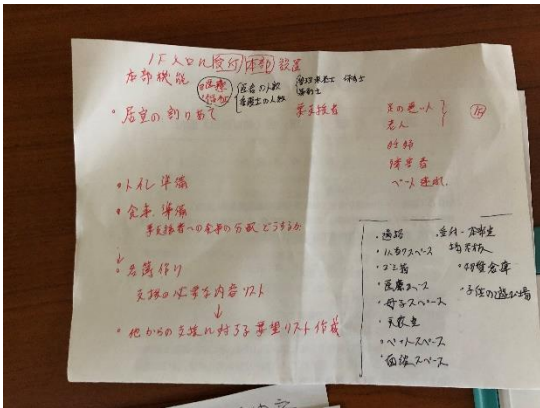 1F入口に受付本部設置
本部機能
医療
福祉
医者の人数
看護士の人数
管理栄養士 保育士
・居室の割りあて
要支援者
足の悪い人
老人
妊婦
障害者
ペット連れ
1F
・トイレ準備
・食事準備
要支援者への食事の分配どうするか
↓
・名簿作り
支援の必要な内容リスト
↓
・他からの支援に対する希望リスト作成
・通路
・ゴミ箱
・医療スペース
・母子スペース
・更衣室
・ペットスペース
・面談スペース
・受付・本部室
掲示板
・物資倉庫
・子供の遊び場